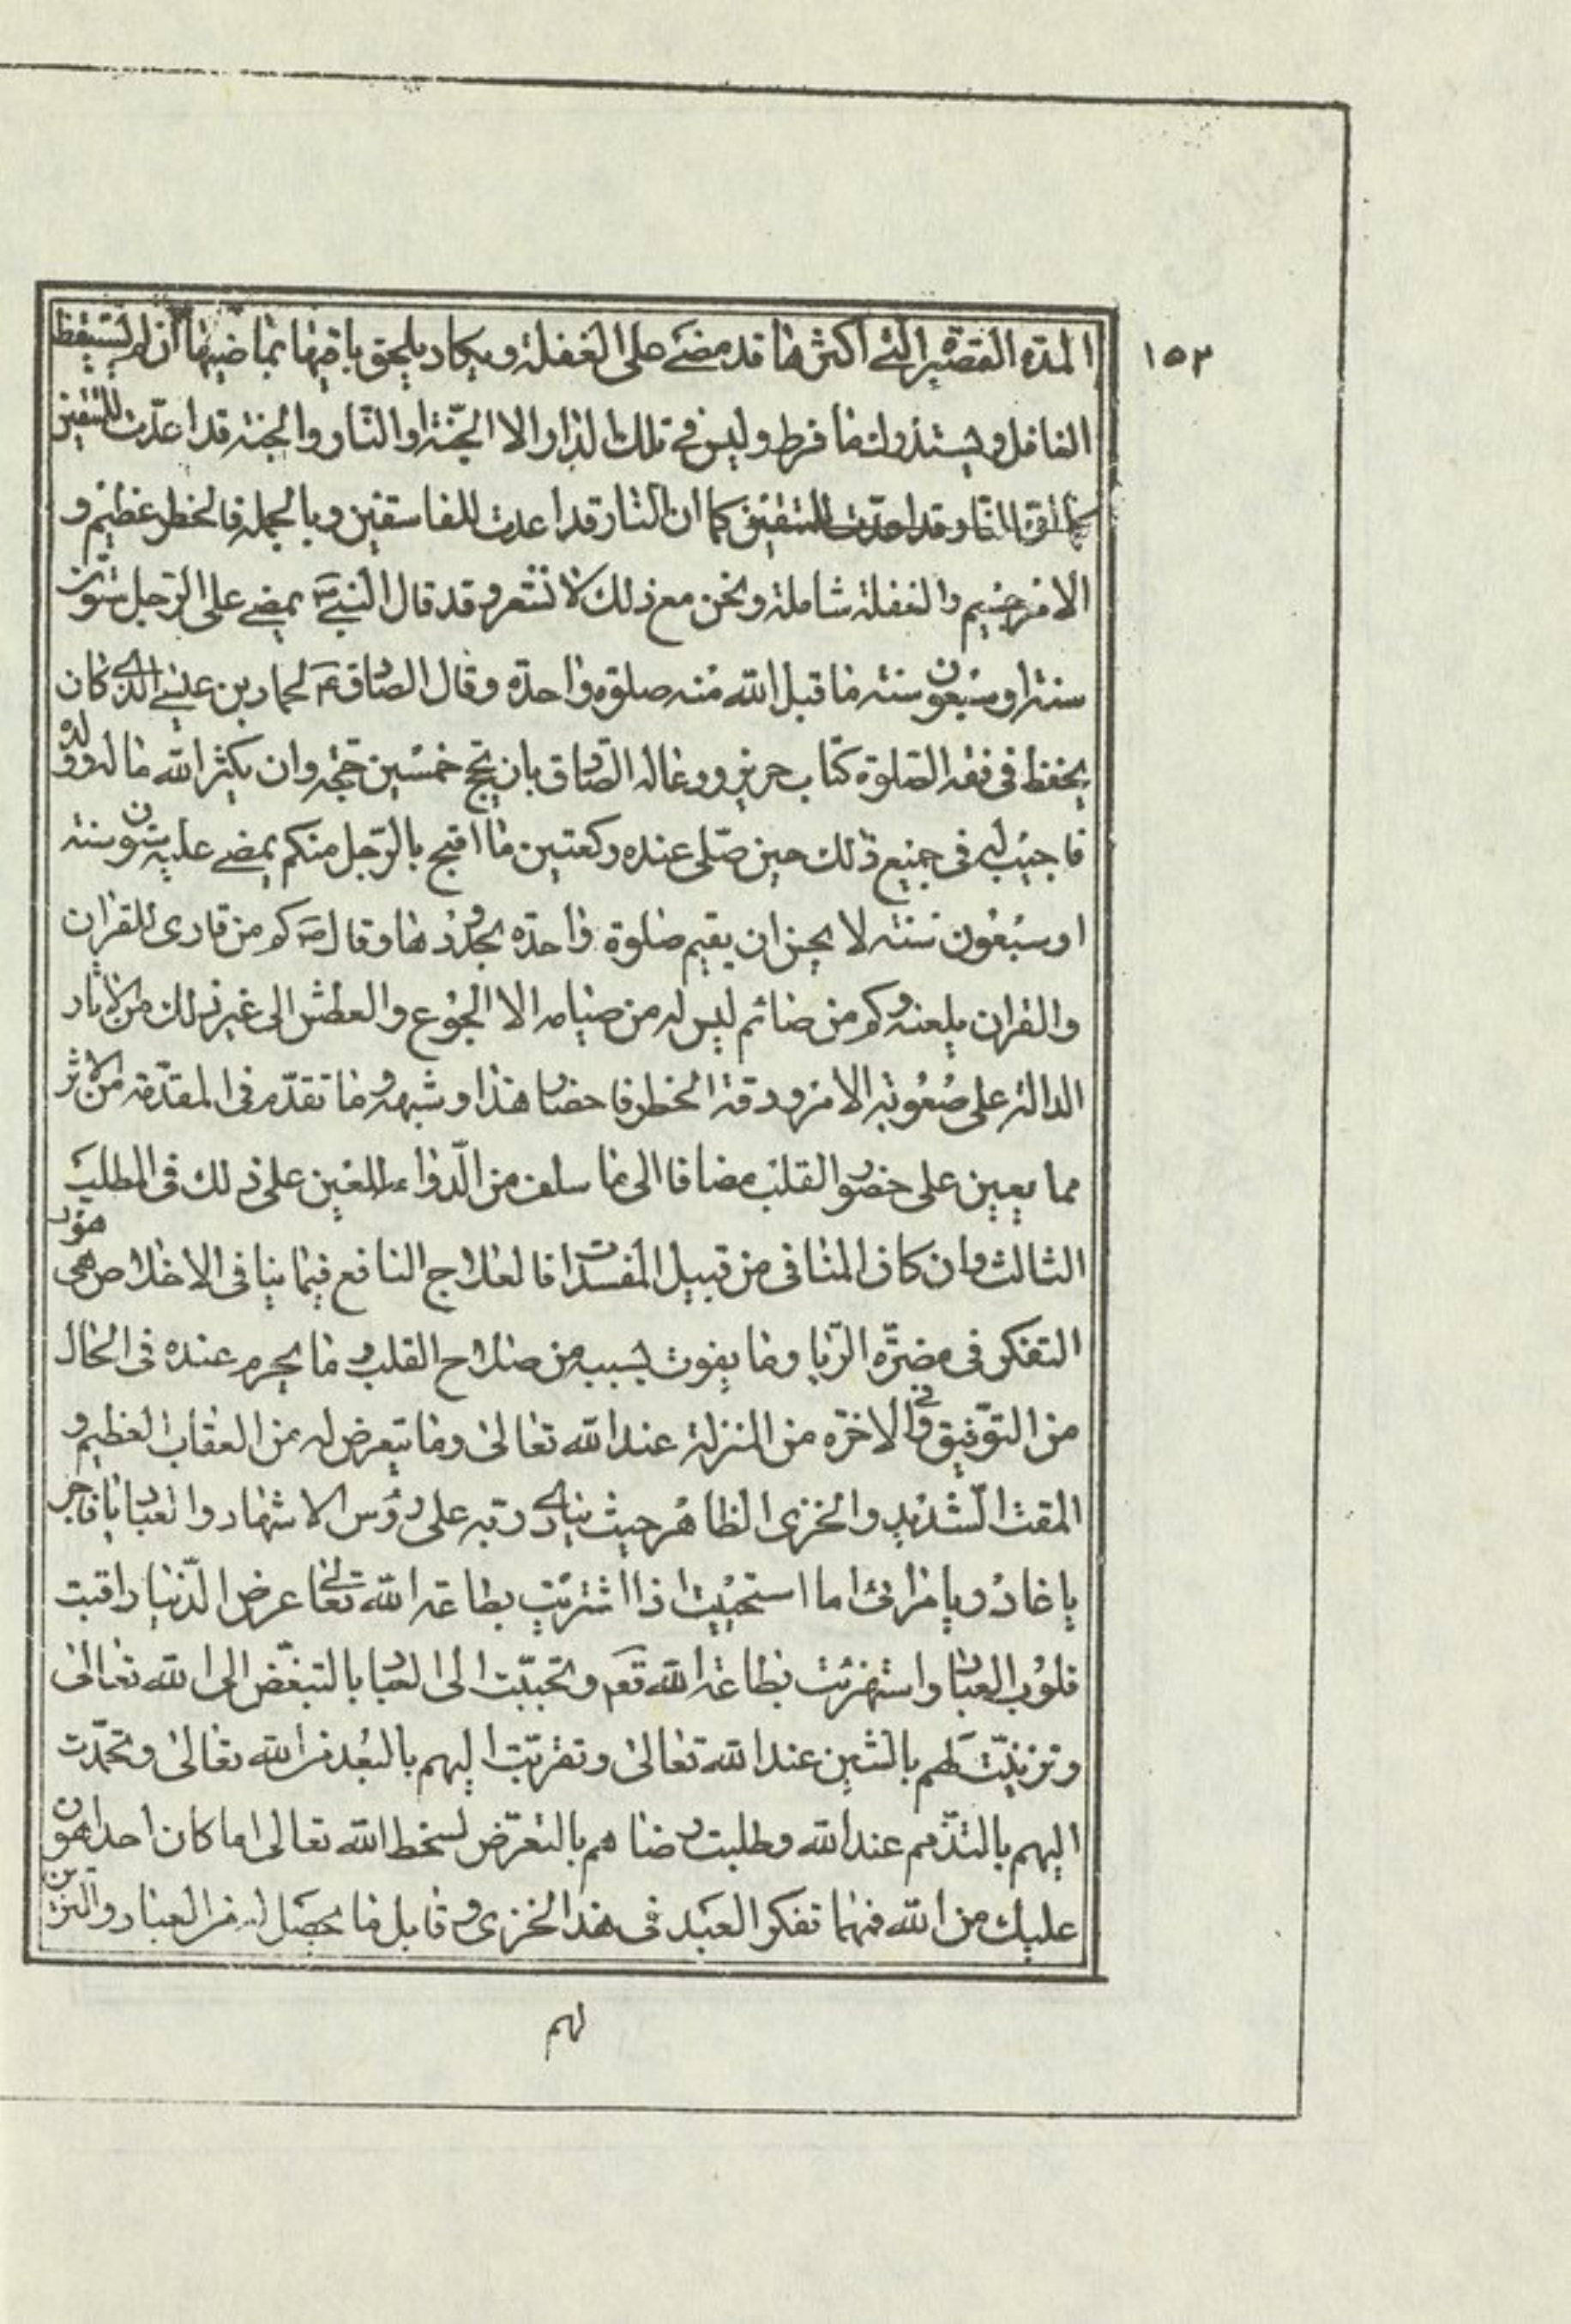 ١٥٢
المدة القصيرة التى أكثرها قد مضى على الغفلة ويكاد يلحق باقيها بماضيها ان لم يستيقظ
الغافل ويستدرك ما فرط وليس فى تلك الدار الا الجنة او النار والجنة قد اعدّت للمتقين
كما ان النار قد اعدت للفاسقين وبالجملة فالخطر عظيم و
الامر جسيم والغفلة شاملة ونحن مع ذلك لا نشعر وقد قال النبىؐ يمضى على الرجل ستون
سنة او سبعون سنة ما قبل الله منه صلوة واحدة وقال الصادقؑ لحماد بن عيسى الذى كان
يحفظ فى فقه الصلوة كتاب حريز ودعا له الصادق بان يحج خمسين حجة وان يكثر الله ماله وولده
فاجيب له فى جميع ذلك حين صلّى عنده ركعتين ما اقبح بالرّجل منكم يمضى عليه ستون سنة
او سبعون سنة لا يحسن ان يقيم صلوة واحدة بحدودها وقالؐ كم من قارئ للقران
والقران يلعنه وكم من صائم ليس له من صيامه الا الجوع والعطش الى غير ذلك من الاثار
الدالة على صعوبة الامر ودقة الخطر فاحضار هذا وشبهه وما تقدّم فى المقدّمة من الاثر
مما يعين على حضور القلب مضافا الى ما سلف من الدّواء المعين على ذلك فى المطلب
الثالث وان كان المنافى من قبيل المفسدات فالعلاج النافع فيما ينافى الاخلاص هو
التفكر فى مضرّة الرّيا وما يفوت بسببه من صلاح القلب وما يحرم عنده فى الحال
من التّوفيق وفى الاخرة من المنزلة عند الله تعالى وما يتعرض له من العقاب العظيم و
المقت الشديد والخزى الظاهر حيث ينادى ربه على رؤس الاشهاد والعباد يا فاجر
يا غادر ويا مرائى اما استحييت اذا اشتريت بطاعة الله تعالى عرض الدّنيا راقبت
قلوب العباد واستهزئت بطاعة الله تعم وتحبّبت الى العباد بالتبغّض الى الله تعالى
وتزينت لهم بالشين عند الله تعالى وتقربّت اليهم بالبعد من الله تعالى وتحمّدت
اليهم بالتذمم عند الله وطلبت رضاهم بالتعرّض لسخط الله تعالى اما كان احد اهون
عليك من الله فمهما تفكر العبد فى هذا الخزى وقابل ما يحصل له من العباد والتزين
لهم